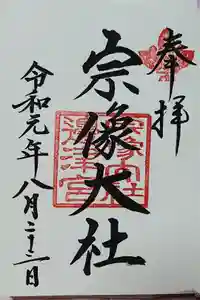 奉拝
宗像大社
令和元年八月二十三日
宗像大社
邊津宮